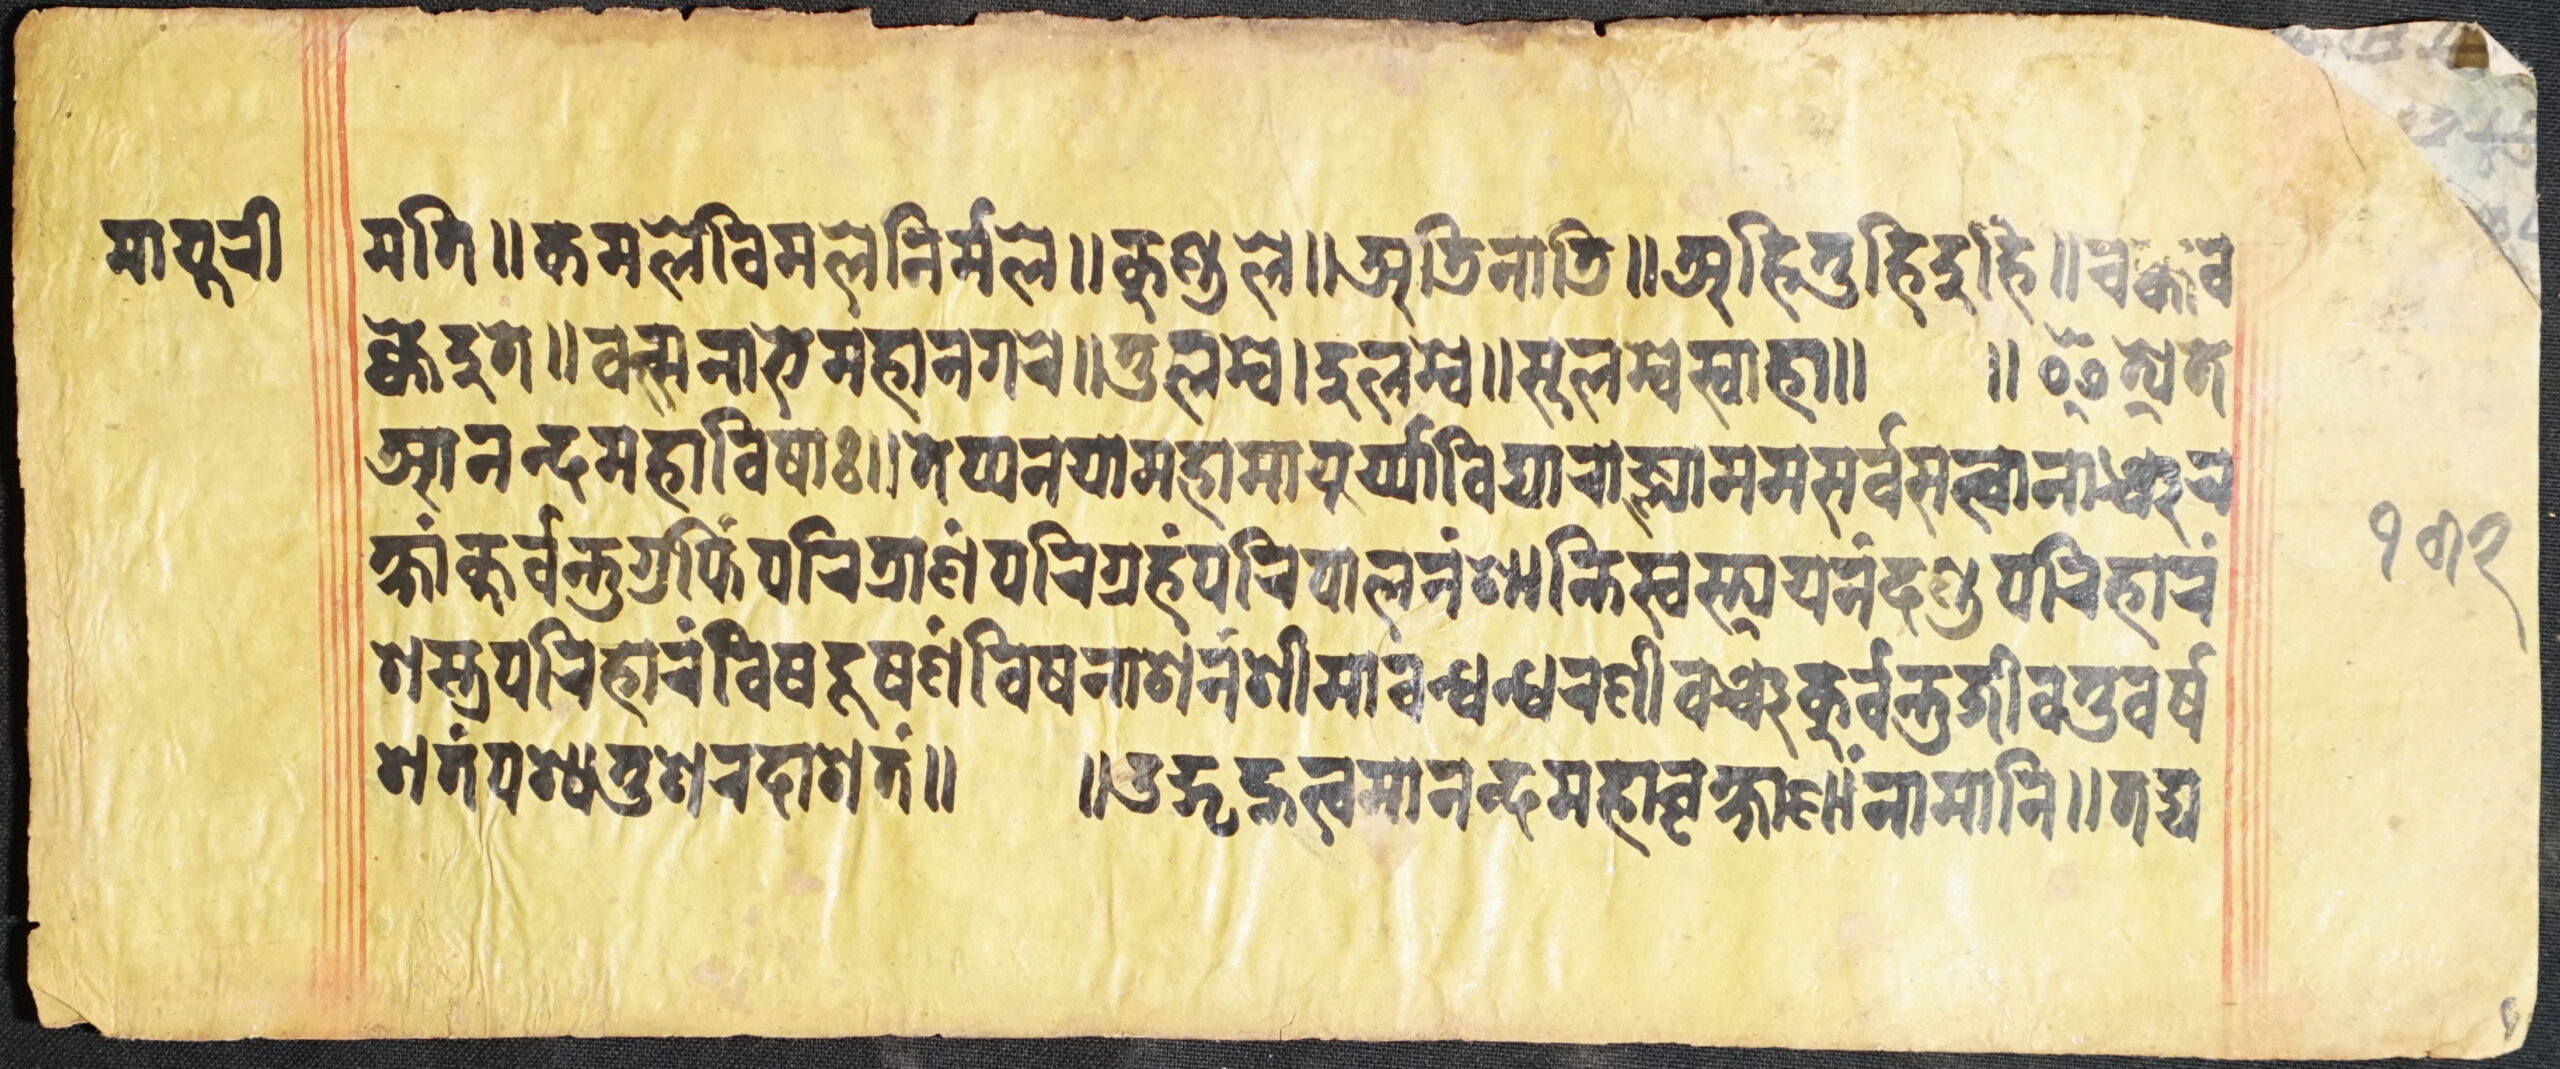 मायुरी
मति॥कमलेविमलेनिर्मले॥कुण्डले॥अतिनाति॥अहितुहिदुहि॥वक्केव
क्केदुते॥वत्सनाभेमहानगरे॥तुलम्बे।दुलम्बे॥सुलम्बेस्वाहा॥ ॥ इत्येत
आनन्दमहाविषाः॥तप्यनयामहामायुर्य्याविद्याराज्ञ्याममसर्वसत्वानाञ्चर
क्षांकुर्वन्तुगुप्तिंपरित्राणंपरिग्रहंपरिपालनंशान्तिस्वस्त्ययनंदण्डपरिहारं
शस्त्रपरिहारंविषदूषणंविषनाशनंशीमाबन्धन्धरणीबञ्चकुर्वन्तुजीवतुवर्ष
शतंपश्यतुशरदाशतं॥ ॥उद्गृह्नत्वमानन्दमहावृक्षाणांनामानि॥तद्य
१७२